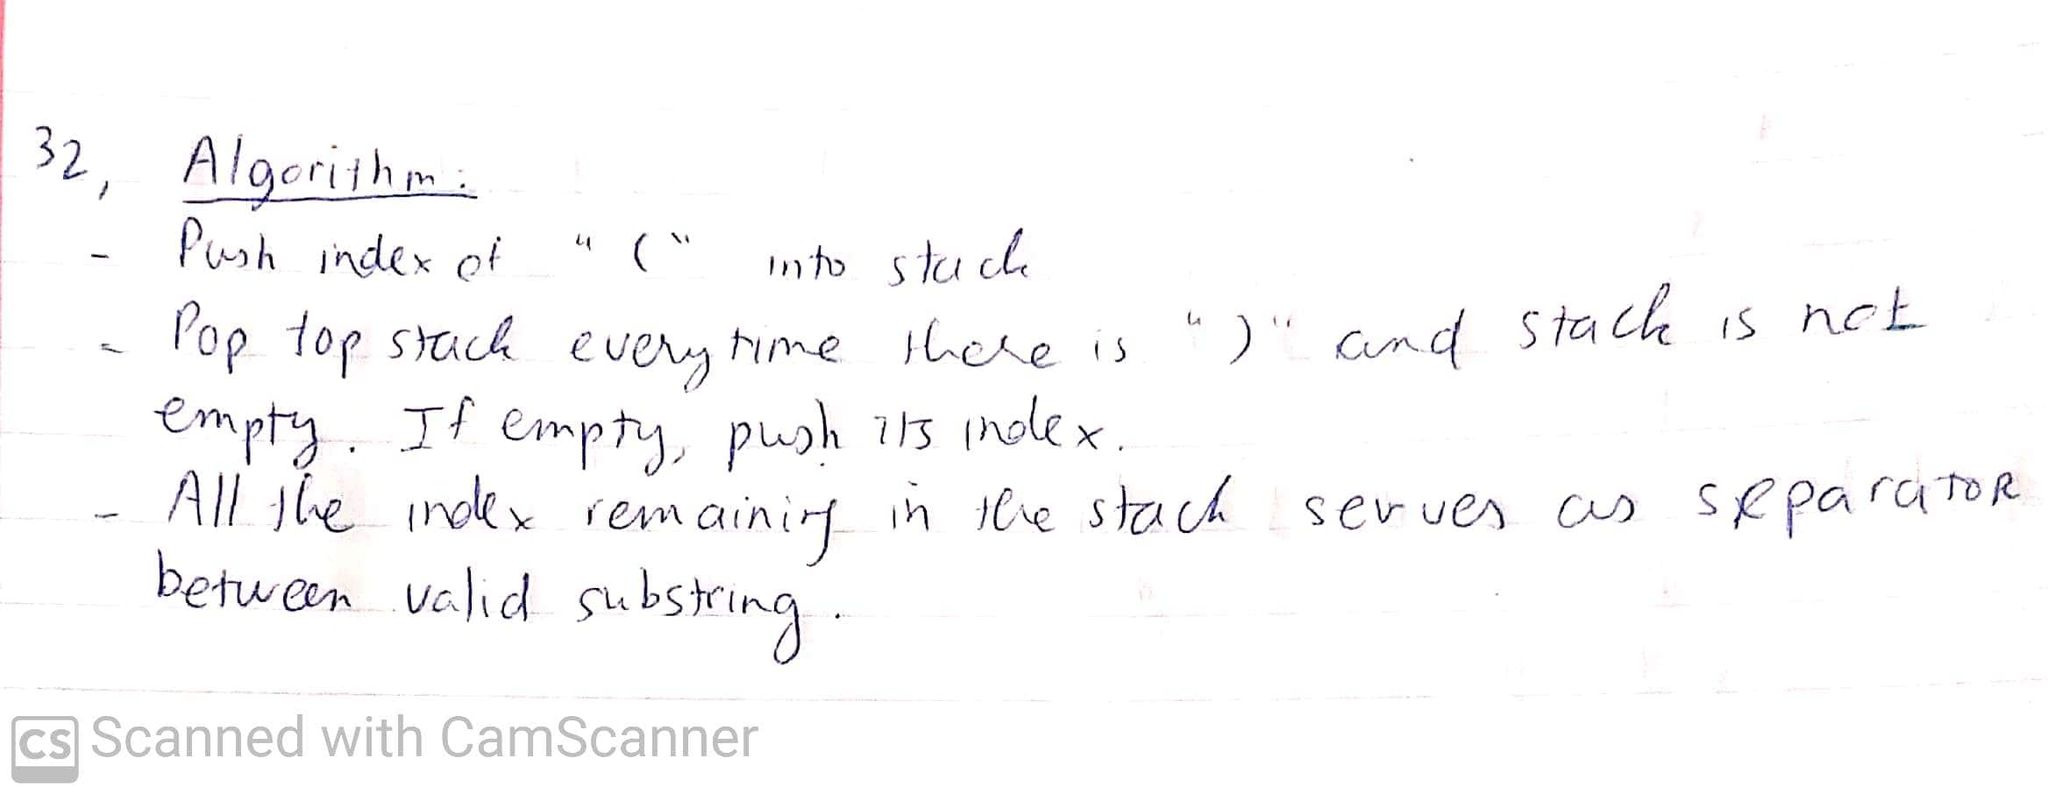 32, Algorithm:
- Push index of "(" into stack
- Pop top stack every time there is ")" and stack is not
empty. If empty, push its index.
- All the index remaining in the stack serves as separator
between valid substring.
CS Scanned with CamScanner